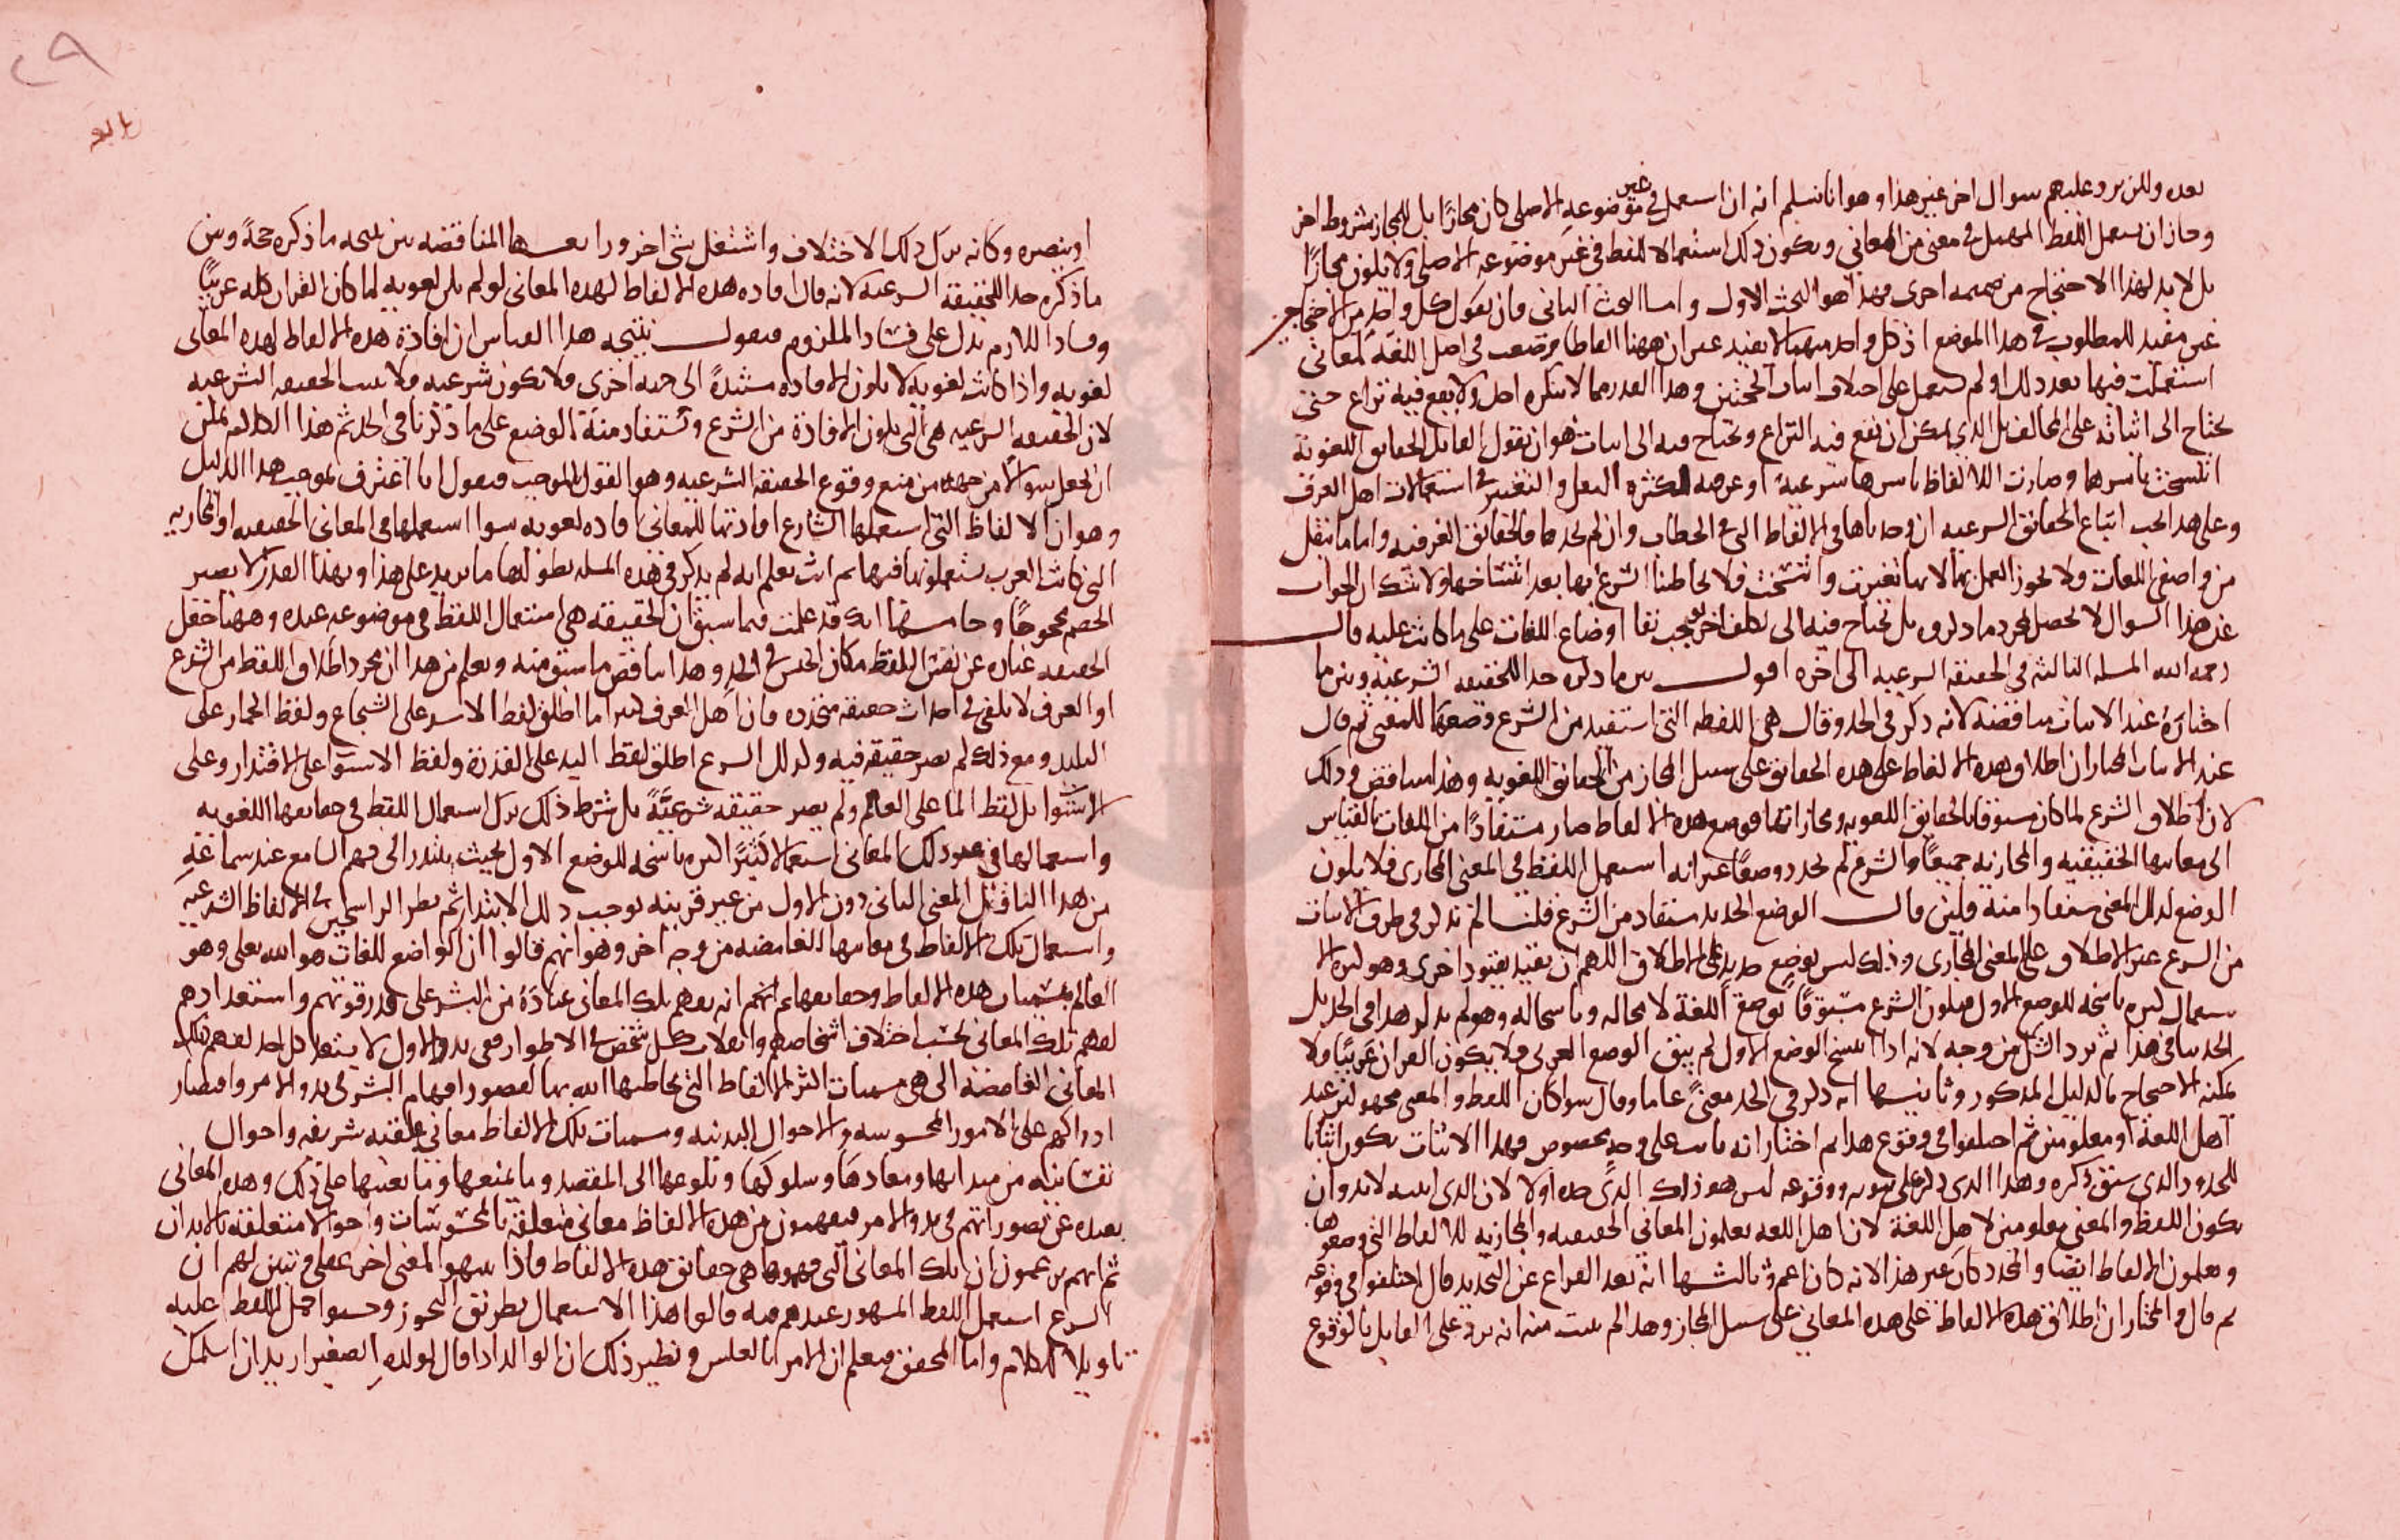 بعده ولكن يرد عليهم سوال اخر غير هذا وهو انا نسلم انه ان استعمل في غير موضوعه الاصلي كان مجازا بل للمجاز شروط اخر
وجاز ان يستعمل اللفظ المهمل في معنى من المعاني ويكون ذلك استعمالا للفظ في غير موضوعه الاصلي ولا يكون مجازا
بل لا بد لهذا الاحتجاج من ضميمه اخرى فهذا هو البحث الاول واما البحث الثاني فان يقول كل واحد من الاحتجاجين
غير مفيد للمطلوب في هذا الموضع اذ كل واحد منهما لا يفيد غير ان ههنا الفاظا وضعت في اصل اللغة لمعاني
استعملت فيها بعد ذلك او لم تستعمل على اختلاف اثبات الحجتين وهذا القدر مما لا ينكره احد ولا يقع فيه نزاع حتى
يحتاج الى اثباته على المخالف بل الذي يمكن ان يقع فيه النزاع ويحتاج فيه الى اثبات هو ان يقول القائل الحقايق اللغوية
انتسخت باسرها وصارت الالفاظ باسرها شرعية او عرفيه لكثره النقل والتغيير في استعمالات اهل العرف
وعلى هذا يجب اتباع الحقائق الشرعيه ان وجدناها في الالفاظ التي في الخطاب وان لم نجدها فالحقائق العرفيه واما ما ينقل
من واضعي اللغات ولا يجوز العمل بها لانها تغيرت وانتسخت فلا يخاطبنا الشرع بها بعد انتساخها ولا شك ان الجواب
عن هذا السوال لا يحصل بمجرد ما ذكروه بل يحتاج فيه الى تكلف اخر يوجب بقا اوضاع اللغات على ما كانت عليه قال
رحمه الله المسله الثالثه في الحقيقة الشرعيه الى اخره اقول بين ما ذكره حدا للحقيقه الشرعية وبين ما
اختاره عند الاثبات مناقضه لانه ذكر في الحد وقال هي اللفظه التي استفيد من الشرع وضعها للمعنى ثم قال
عند الاثبات المختار ان اطلاق هذه الالفاظ على هذه الحقايق على سبيل المجاز من الحقائق اللغويه وهذا تناقض وذلك
لان اطلاق الشرع لما كان مسبوقا بالحقايق اللغويه ومجازاتها فوضع هذه الالفاظ صار مستفادا من اللغات بالقياس
الى معانيها الحقيقيه والمجازيه جميعا والشرع لم يجدد وضعا غير انه استعمل اللفظ في المعنى المجازي فلا يكون
الوضع لذلك المعنى مستفادا منه فلئن قال الوضع الجديد مستفاد من الشرع قلنا لم تذكر في طرف الاثبات
من الشرع غير الاطلاق على المعنى المجازي وذلك ليس بوضع جديد على الاطلاق اللهم ان يقيد بقيود اخرى وهو كثره الا
ستعمال كثره ناسخه للوضع الاول فيكون الشرع مسبوقا بوضع اللغة لا محاله وناسخا له وهو لم يذكر هذا في الحد بل
الحد ينافي هذا ثم يرد اشكل من وجه لانه اذا انتسخ الوضع الاول لم يبق الوضع العربي فلا يكون القران عربيا ولا
يمكنه الاحتجاج بالدليل المذكور وثانيها انه ذكر في الحد معنى عاما وقال سوا كان اللفظ والمعنى مجهولين عند
اهل اللغة او معلومين ثم اختلفوا في وقوع هذا ثم اختار انه ثابت على وجه مخصوص فهذا الاثبات يكون اثباتا
للمحدود الذي سبق ذكره وهذا الذي ذكر على ثبوته ووقوعه ليس هو ذلك الذي حده اولا لان الذي اثبته لا بد وان
يكون اللفظ والمعنى معلومين لاهل اللغة لان اهل اللغه يعلمون المعاني الحقيقيه والمجازيه للالفاظ التي وضعوها
ويعلمون الالفاظ ايضا والمحدد كان غير هذا لانه كان اعم وثالثها انه بعد الفراغ عن التحديد قال اختلفوا في وقوعه
ثم قال والمختار ان اطلاق هذه الالفاظ على هذه المعاني على سبيل المجاز وهذا لم يثبت منه انه يرد على القايل بالوقوع
٢٩
او ينصره وكانه ترك ذلك الاختلاف واشتغل بشي اخر ورابعها المناقضه بين نتيجه ما ذكره حجة وبين
ما ذكره حدا للحقيقة الشرعيه لانه قال افاده هذه الالفاظ لهذه المعاني لو لم يكن لغويه لما كان القران كله عربيا
وفساد اللازم يدل على فساد الملزوم فنقول نتيجه هذا القياس ان افادة هذه الالفاظ لهذه المعاني
لغويه واذا كانت لغويه لا يكون الافاده مستندة الى جهه اخرى فلا يكون شرعيه فلا يثبت الحقيقه الشرعيه
لان الحقيقه الشرعيه هي التي يكون الافادة من الشرع وتستفاد منه الوضع على ما ذكرنا في الحد ثم هذا الكلام يمكن
ان يجعل سوالا من جهه من منع وقوع الحقيقة الشرعيه وهو القول بالموجب فنقول انا اعترف بموجب هذا الدليل
وهو ان الالفاظ التي استعملها الشارع افادتها للمعاني افاده لغويه سوا استعملها في المعاني الحقيقيه او المجازيه
التي كانت العرب يستعملونها فيها ثم انت تعلم انه لم يذكر في هذه المسله بطولها ما يزيد على هذا وبهذا القدر لا يصير
الخصم محجوجا وخامسها انك قد علمت فيما سبق ان الحقيقه هي استعمال اللفظ في موضوعه عنده وههنا جعل
الحقيقه عباره عن نفس اللفظ مكان الجنس في الحد وهذا يناقض ما سبق منه ويعلم من هذا ان مجرد اطلاق اللفظ من الشرع
او العرف لا يكفي في احداث حقيقه متجدده فان اهل العرف كثيرا ما اطلق لفظ الاسد على الشجاع ولفظ الحمار على
البليد ومع ذلك لم يصر حقيقة فيه وكذلك الشرع اطلق لفظ اليد على القدرة ولفظ الاستوا على الاقتدار وعلى
الاستوا بل لفظ الما على العالم ولم يصر حقيقه شرعيّةً بل شرط ذلك ترك استعمال اللفظ في حقايقها اللغويه
واستعمالها في غير ذلك المعاني استعمالا كثيرا كثره ناسخه للوضع الاول بحيث يتبادر الى فهم السامع عند سماعه
من هذا الناقل المعنى الثاني دون الاول من غير قرينه توجب ذلك الابتدار ثم نظر الراسخين في الالفاظ الشرعيه
واستعمال تلك الالفاظ في معانيها الغامضه من وجه اخر وهو انهم قالوا ان الواضع للغات هو الله تعلى وهو
العالم بمسميات هذه الالفاظ وحقايقها ثم انه يفهم تلك المعاني عباده من البشر على قدر قوتهم واستعدادهم
لفهم تلك المعاني بحسب اختلاف اشخاصهم وانقلاب كل شخص في الاطوار ففي بدو الاول لا يستعد كل احد لفهم تلك
المعاني الغامضه التي هي مسميات اكثر الالفاظ التي يخاطبها الله بها لقصور افهام البشر في بدو الامر واقتصار
ادراكهم على الامور المحسوسه والاحوال البدنيه ومسميات تلك الالفاظ معاني عقليه شريفه واحوال
نفسانيه من مبدايها ومعادها وسلوكها وبلوغها الى المقصد وما يمنعها وما يعينها على ذلك وهذه المعاني
بعيده عن تصوراتهم في بدو الامر فيفهمون من هذه الالفاظ معاني متعلقة بالمحسوسات واحوالا متعلقه بالابدان
ثم انهم يزعمون ان تلك المعاني التي فهموها هي حقايق هذه الالفاظ فاذا تنبهوا لمعنى اخر عقلي وتبين لهم ان
الشرع استعمل اللفظ المشهور عندهم فيه قالوا هذا الاستعمال بطريق التجوز وحسبوا حمل اللفظ عليه
تاويلا للكلام واما المحقق فيعلم ان الامر بالعكس ونظير ذلك ان الوالد اذا قال لولده الصغير اريد ان اسلمك